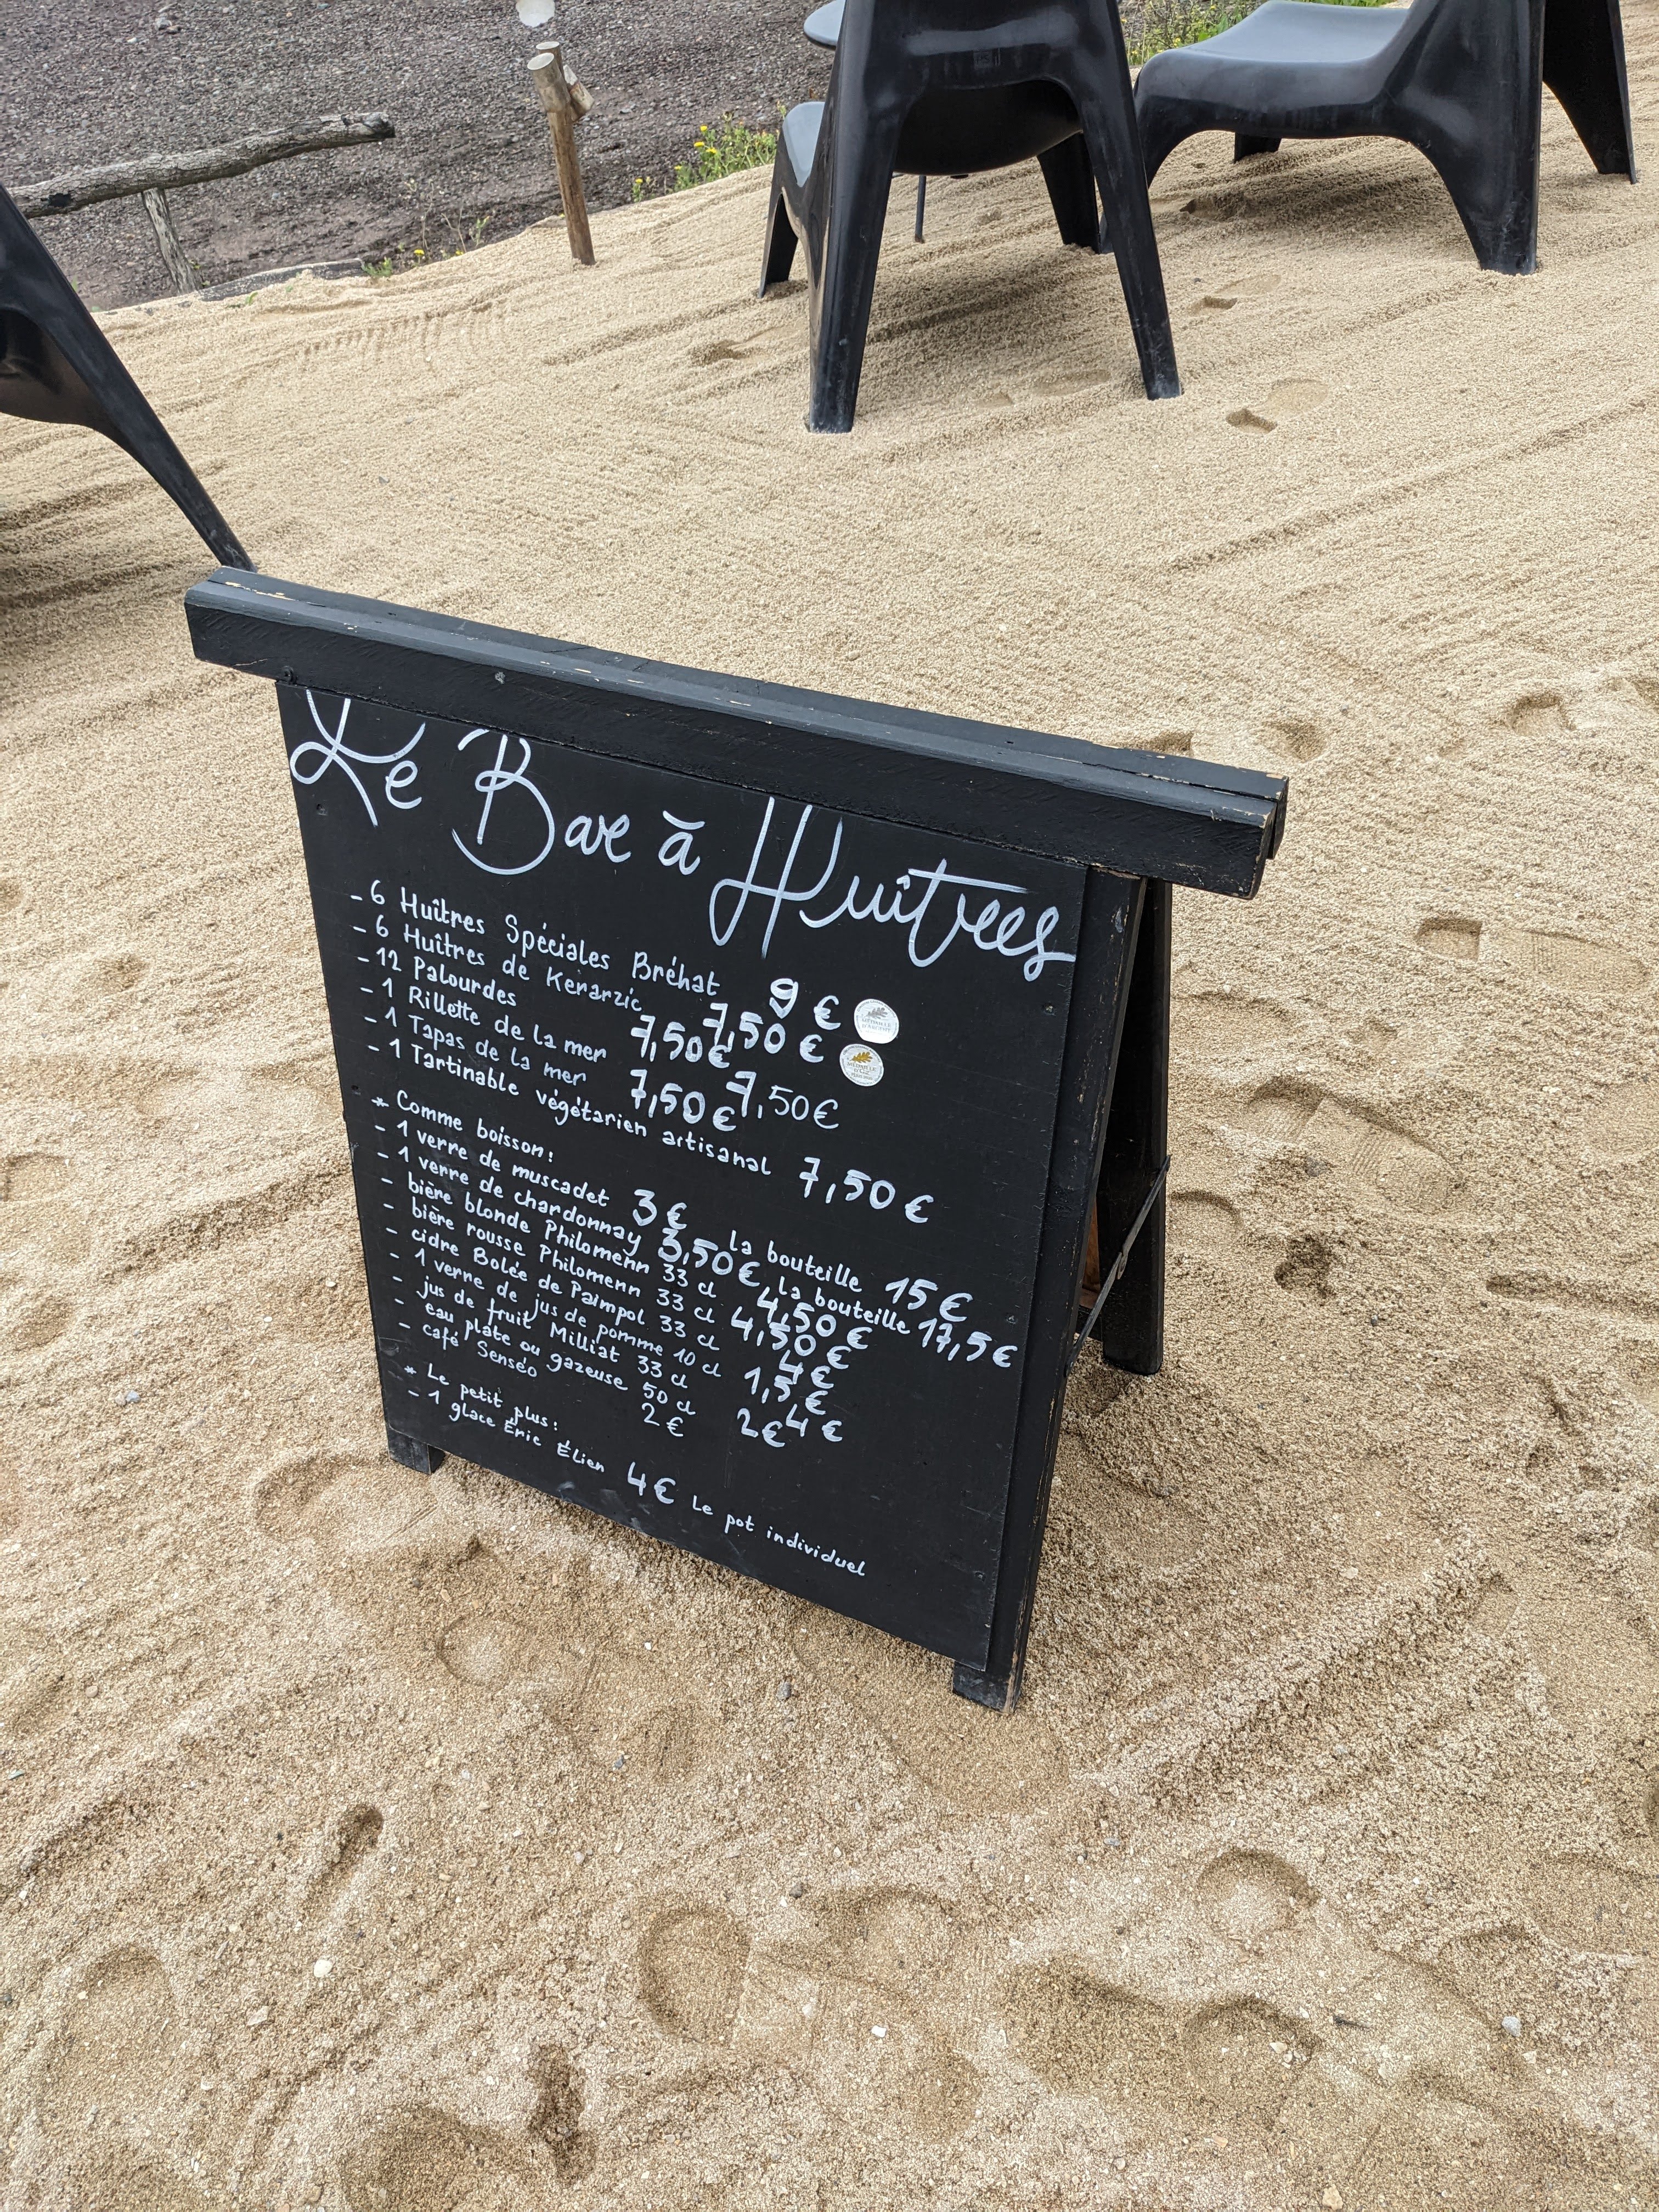 Le Bar à Huîtres
- 6 Huîtres Spéciales Bréhat 9 €
- 6 Huîtres de Kerarzic 7,50 €
- 12 Palourdes 7,50€
- 1 Rillette de la mer 7,50€
- 1 Tapas de la mer 7,50€
- 1 Tartinable végétarien artisanal 7,50€
* Comme boisson:
- 1 verre de muscadet 3€ la bouteille 15€
- 1 verre de chardonnay 3,50€ la bouteille 17,5€
- bière blonde Philomenn 33 cl 4,50€
- bière rousse Philomenn 33 cl 4,50€
- cidre Bolée de Paimpol 33 cl 4€
- 1 verre de jus de pomme 10 cl 1,5€
- jus de fruit Milliat 33 cl 4€
- eau plate ou gazeuse 50 cl 2€
- café Senséo 2€
* Le petit plus:
- 1 glace Éric Élien 4€ Le pot individuel